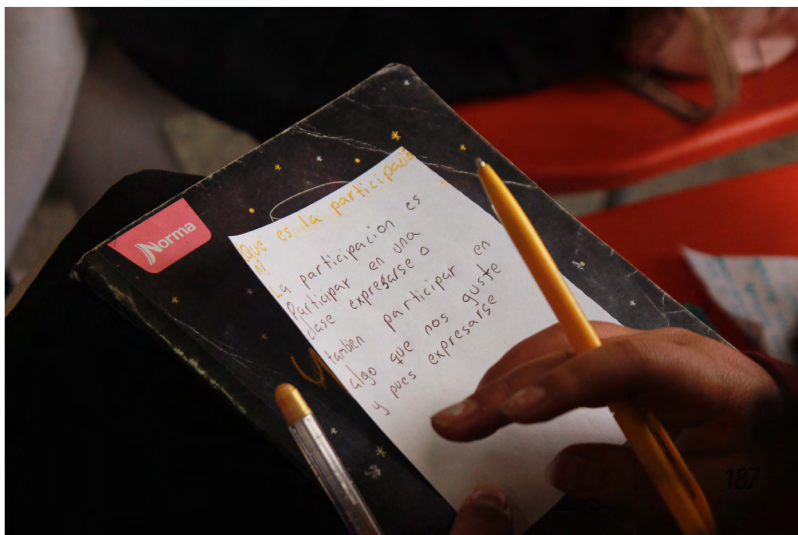 Norma
Que es la participació
m?
La participacion es
Participar en una
clase expresarse o
tambien participar en
algo que nos guste
y pues expresarse
187